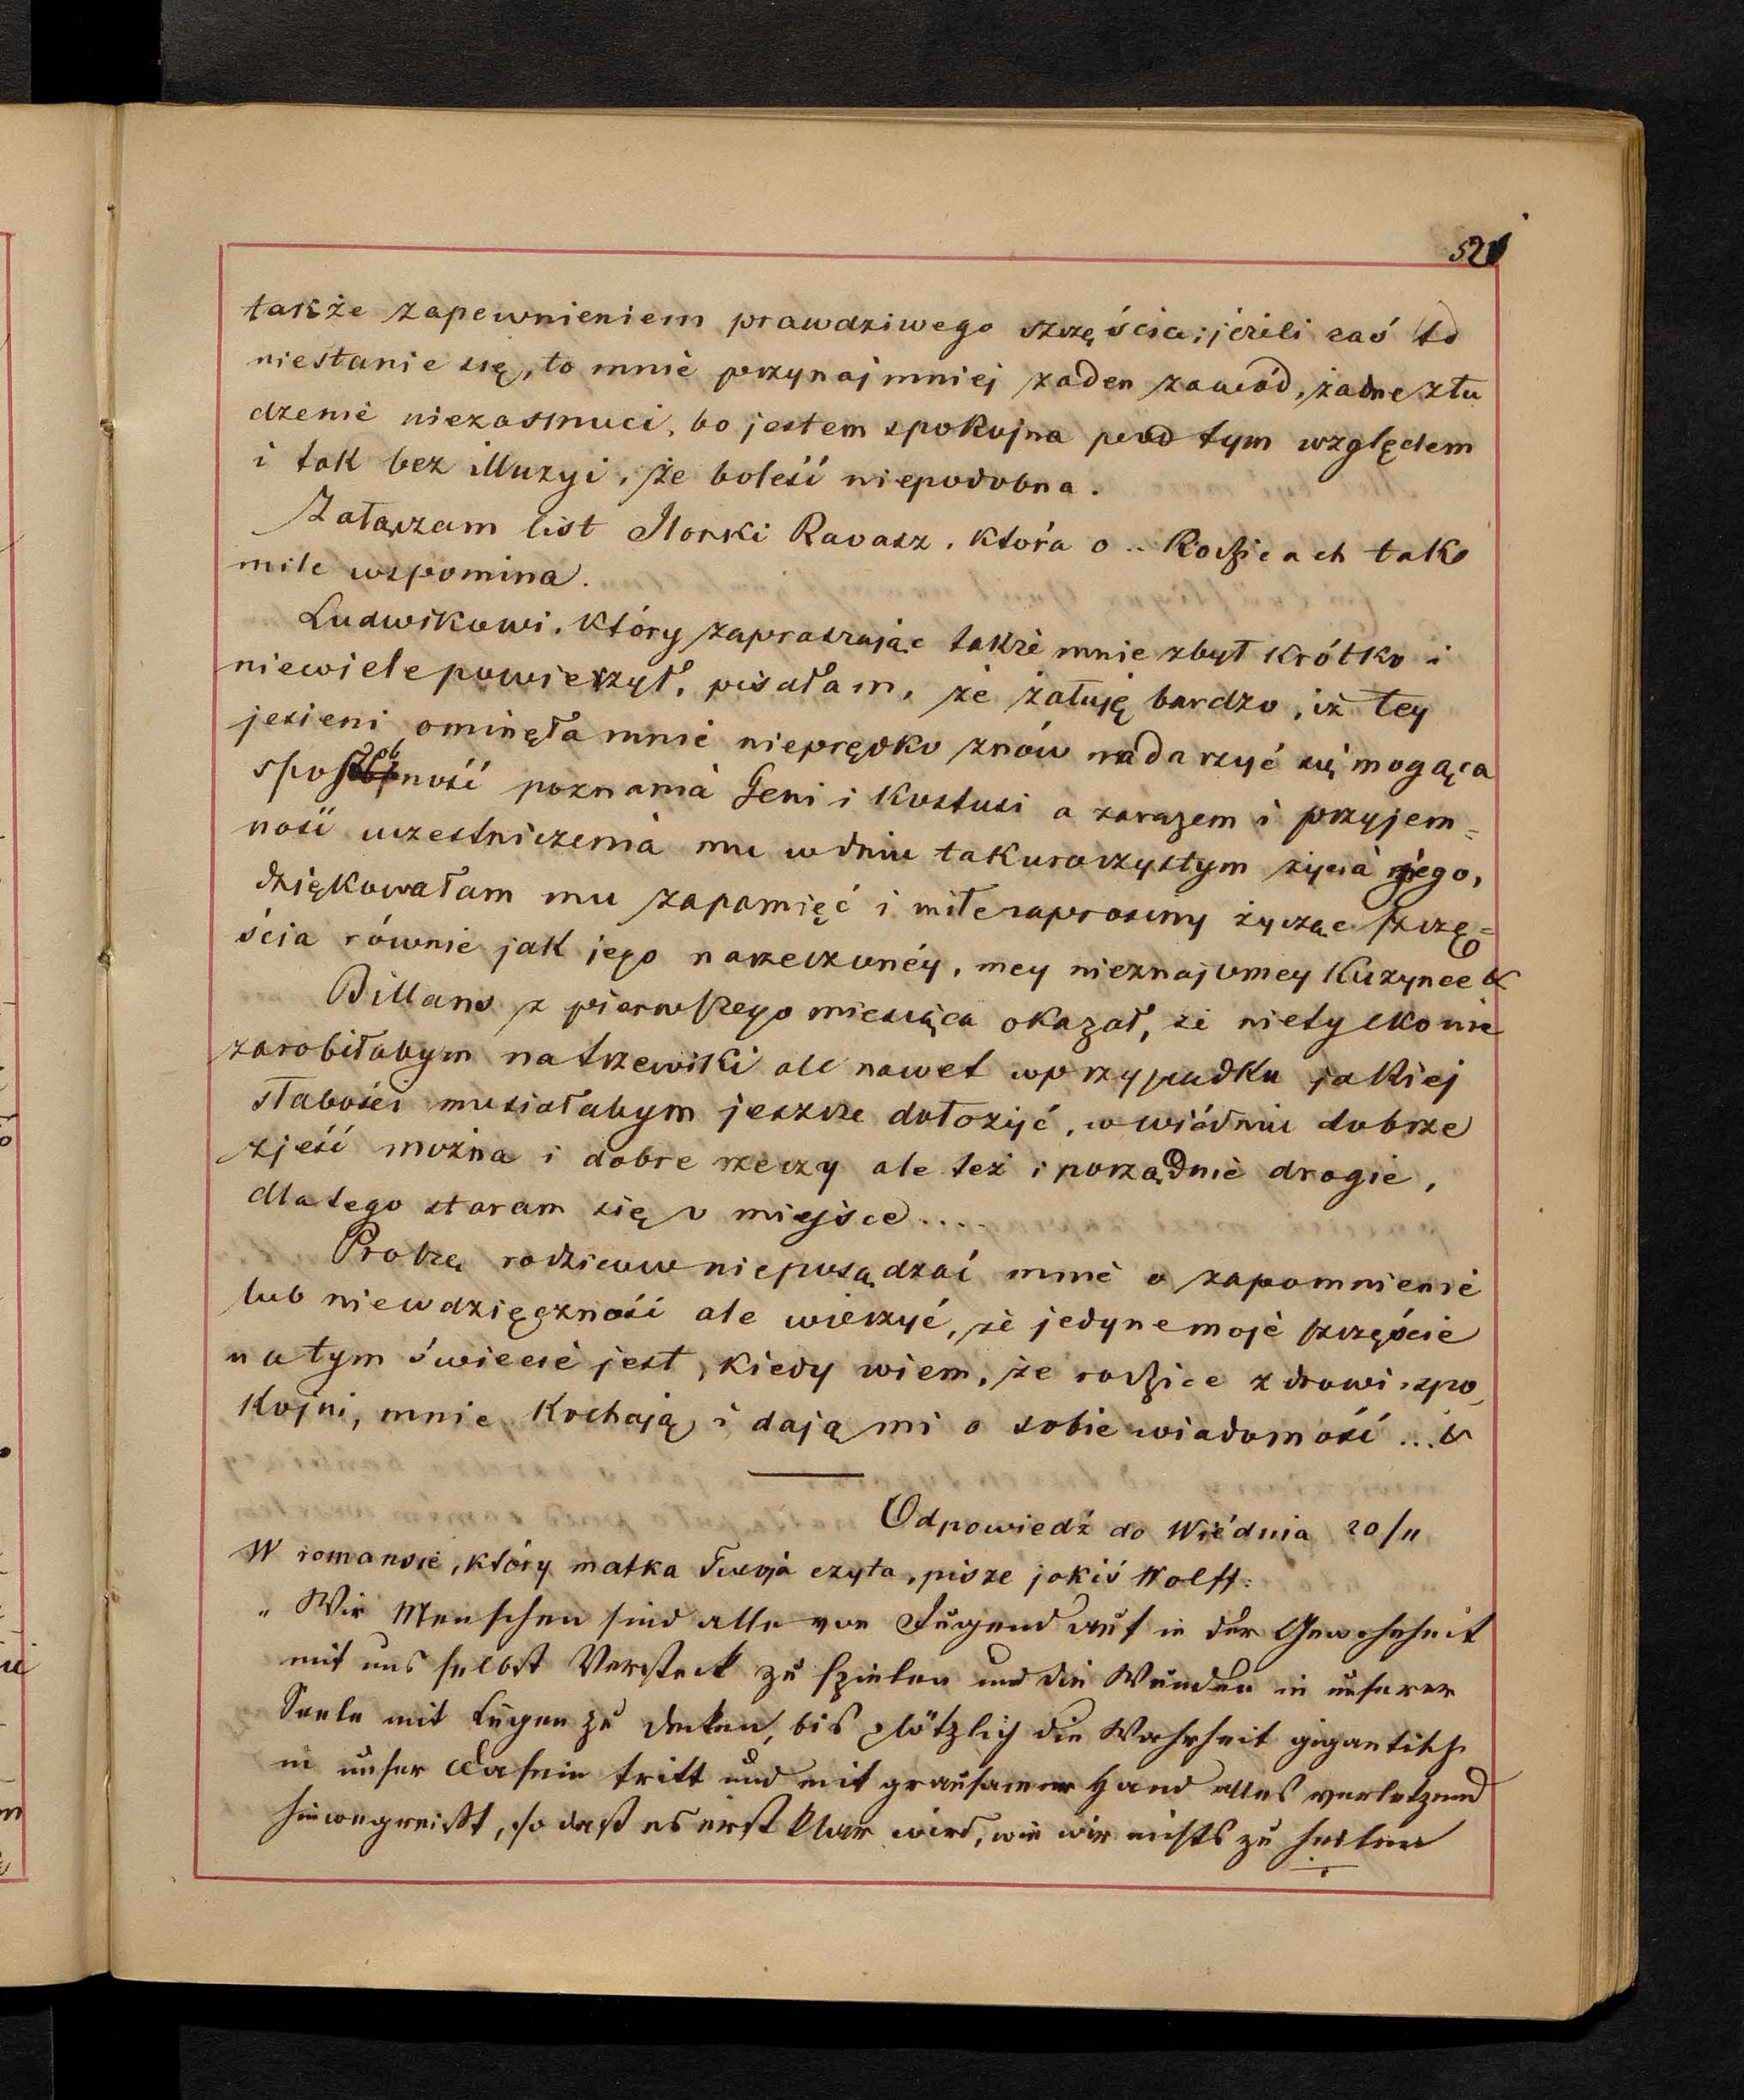 521
także zapewnieniem prawdziwego szczęścia; jeżeli zaś to
niestanie się, to mnie przynajmniej żaden zawód, żadne złu
dzenie niezasmuci, bo jestem spokojna pod tym względem
i tak bez illuzyi, że boleść niepodobna.
Załączam list Ilonki Ravasz, która o .. Rodzicach tako
mile wspomina.
Ludwikowi, który zapraszając także mnie zbyt krótko i
niewiele powierzył, pisałam, że żałuję bardzo, iż tey
jesieni ominęła mnie nieprędko znów nadarzyć się mogąca
sposobność poznania Geni i Kostusi a zarazem i przyjem=
ność uczestniczenia mu w dniu tak uroczystym życia jego,
dziękowałam mu za pamięć i miłe zaprosiny życząc szczę=
ścia równie jak jego narzeczonéy, mey nieznajomey Kuzynce &
Billans z pierwszego miesiąca okazał, że nietylko nie
zarobiłabym na trzewiki ale nawet w przypadku jakiej
słabości musiałabym jeszcze dołożyć, w wiédniu dobrze
zjeść można i dobre rzeczy ale też i porządnie drogie,
dlatego staram się o miejsce....
Proszę rodziców nieposądzać mnie o zapomnienie
lub niewdzięczność ale wierzyć, że jedyne moje szczęście
na tym świecie jest, kiedy wiem, że rodzice zdrowi, spo
kojni, mnie kochają i dają mi o sobie wiadomość ... &
Odpowiedź do Wiédnia 20/11
W romansie, który matka Twoja czyta, pisze jakiś Wolff:
„Wir Menschen sind alle von Jugend auf in der Gewohnheit
mit uns selbst Versteck zu spielen und die Wunden in unserer
Seele mit Lügen zu decken, bis plötzlich die Wahrheit gigantisch
in unser Dasein tritt und mit grausamer Hand alles verletzend
hinwegreißt, so daß es erst klar wird, wie wir nichts zu heilen